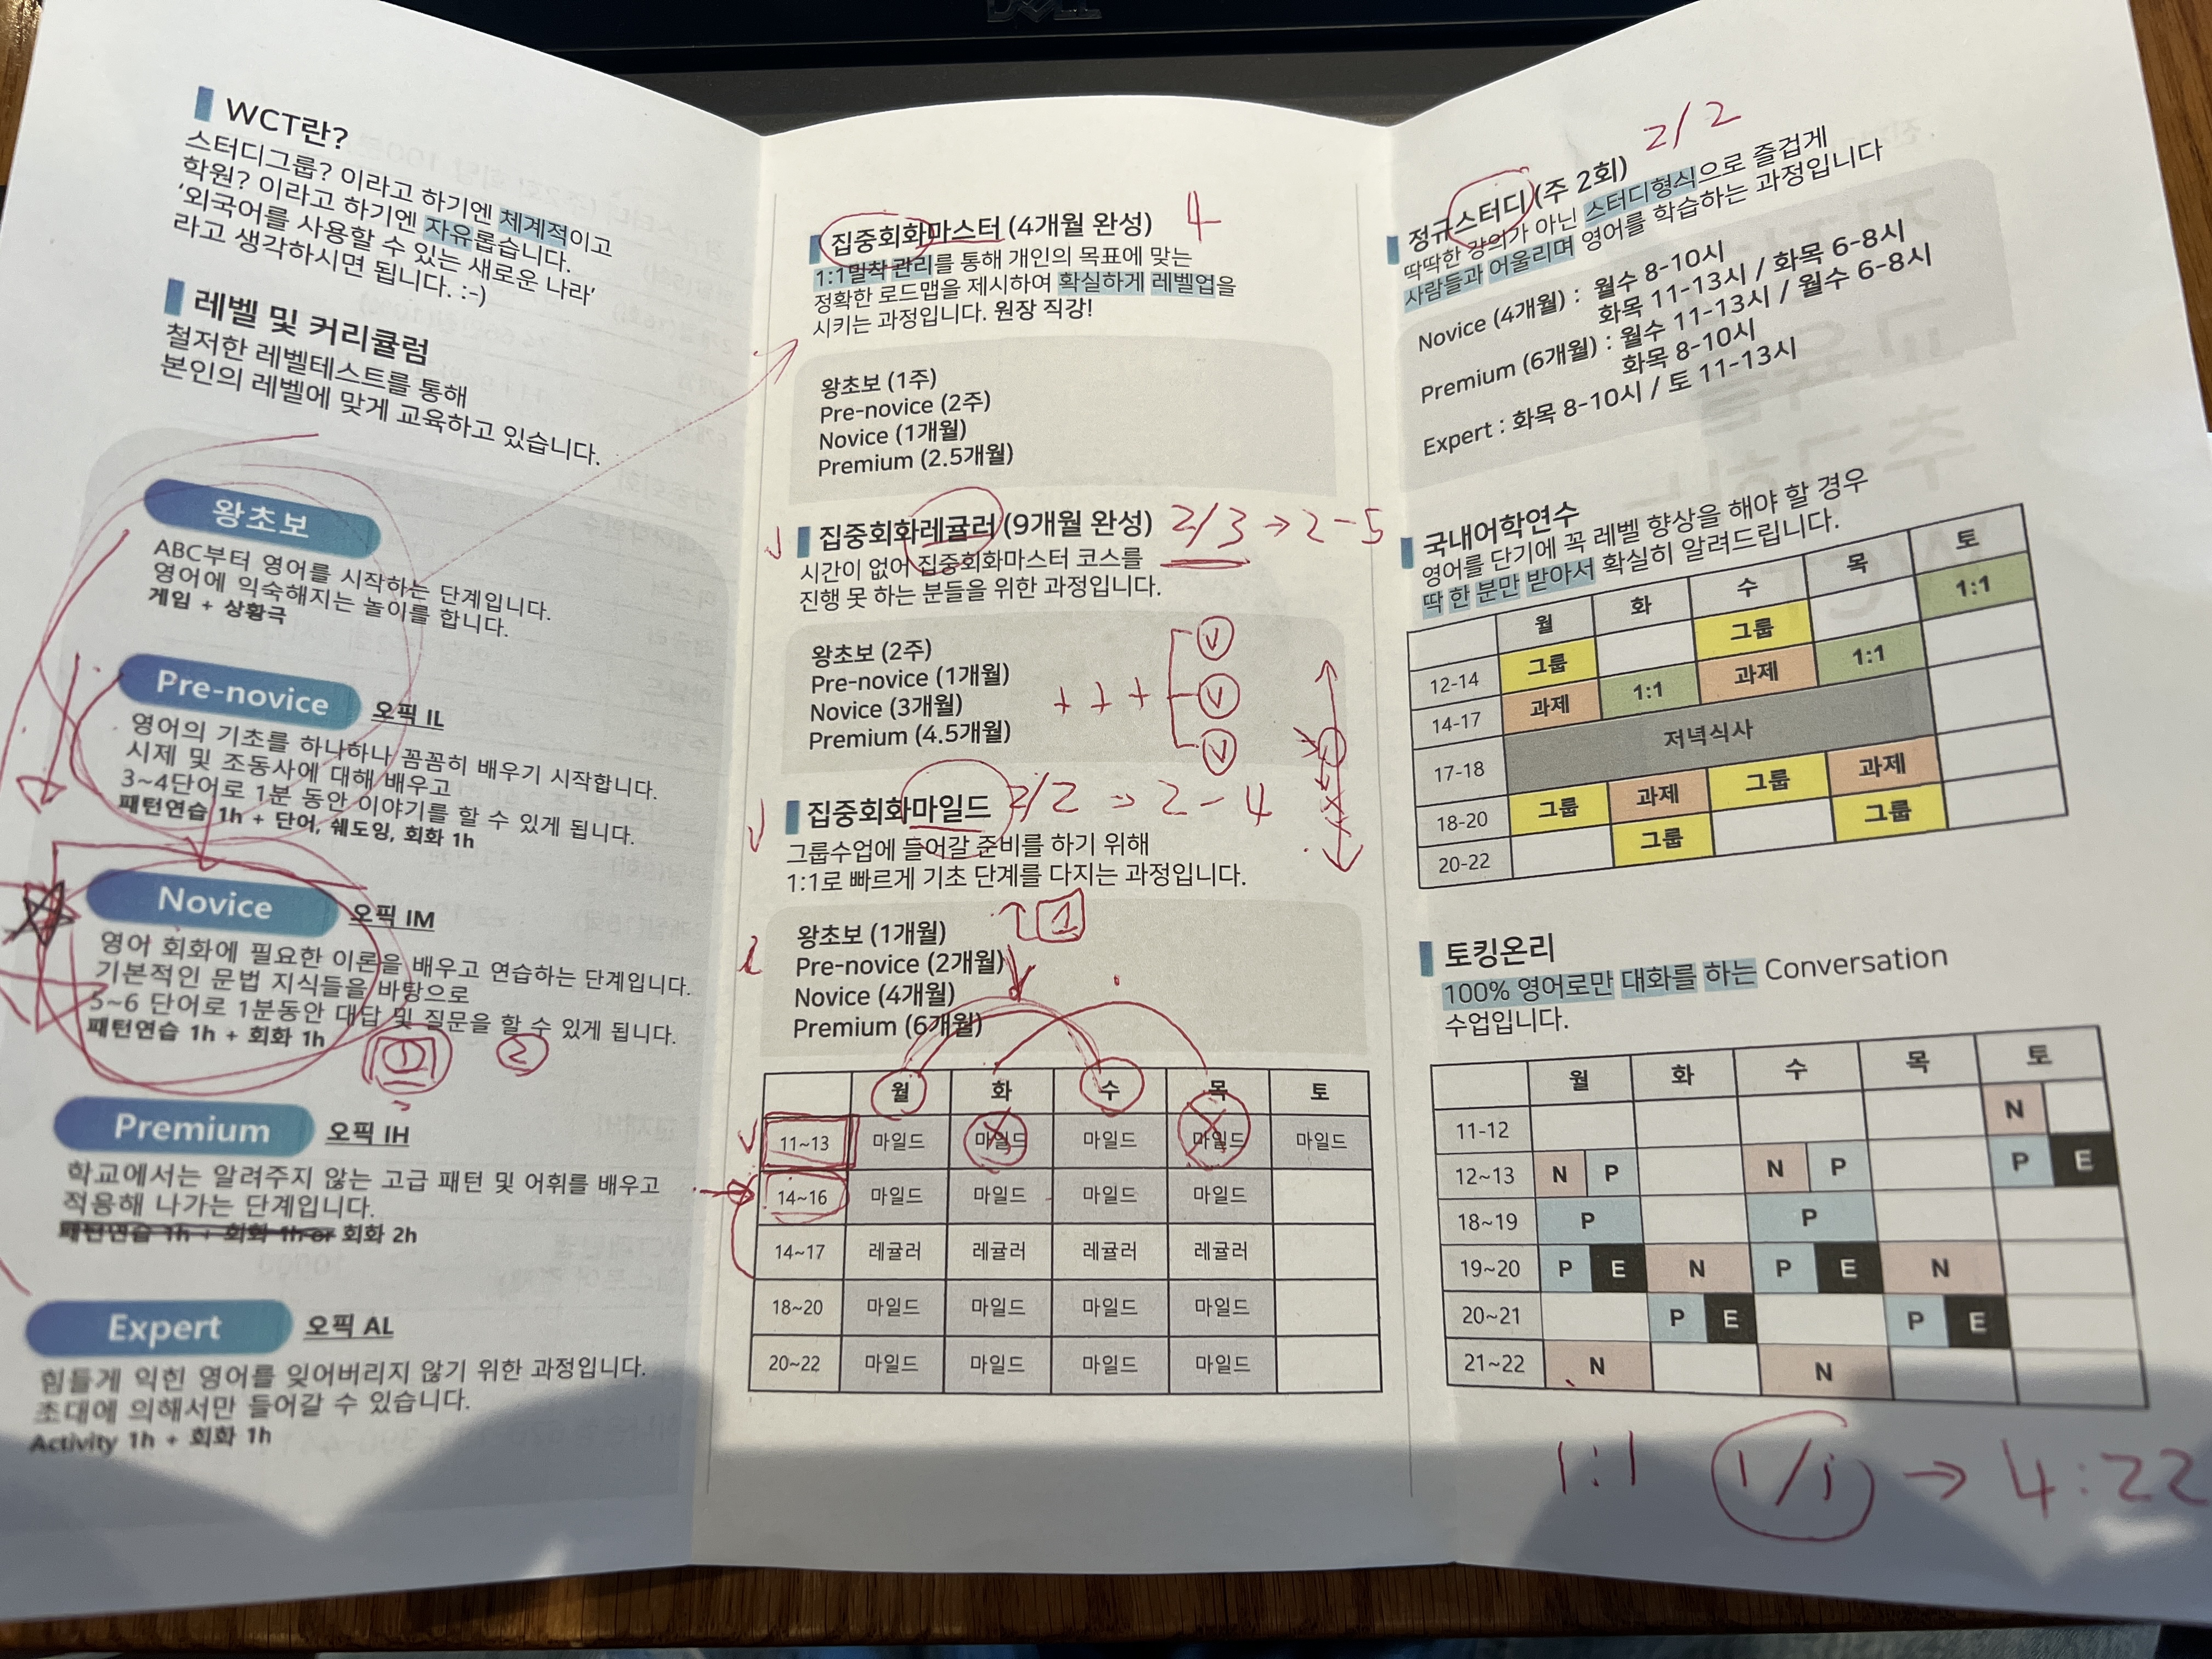 DELL
WCT란?
스터디그룹? 이라고 하기엔 체계적이고
학원? 이라고 하기엔 자유롭습니다.
'외국어를 사용할 수 있는 새로운 나라'
라고 생각하시면 됩니다. :-)
레벨 및 커리큘럼
철저한 레벨테스트를 통해
본인의 레벨에 맞게 교육하고 있습니다.
왕초보
ABC부터 영어를 시작하는 단계입니다.
영어에 익숙해지는 놀이를 합니다.
게임 + 상황극
Pre-novice 오픽 IL
영어의 기초를 하나하나 꼼꼼히 배우기 시작합니다.
시제 및 조동사에 대해 배우고
3~4단어로 1분 동안 이야기를 할 수 있게 됩니다.
패턴연습 1h + 단어, 쉐도잉, 회화 1h
Novice 오픽 IM
영어 회화에 필요한 이론을 배우고 연습하는 단계입니다.
기본적인 문법 지식들을 바탕으로
5~6 단어로 1분동안 대답 및 질문을 할 수 있게 됩니다.
패턴연습 1h + 회화 1h
1 2
Premium 오픽 IH
학교에서는 알려주지 않는 고급 패턴 및 어휘를 배우고
적용해 나가는 단계입니다.
패턴연습 1h + 회화 1h or 회화 2h
Expert 오픽 AL
힘들게 익힌 영어를 잊어버리지 않기 위한 과정입니다.
초대에 의해서만 들어갈 수 있습니다.
Activity 1h + 회화 1h
집중회화마스터 (4개월 완성) 4
1:1밀착 관리를 통해 개인의 목표에 맞는
정확한 로드맵을 제시하여 확실하게 레벨업을
시키는 과정입니다. 원장 직강!
왕초보 (1주)
Pre-novice (2주)
Novice (1개월)
Premium (2.5개월)
집중회화레귤러 (9개월 완성) 2/3 → 2-5
시간이 없어 집중회화마스터 코스를
진행 못 하는 분들을 위한 과정입니다.
왕초보 (2주)
Pre-novice (1개월)
Novice (3개월)
Premium (4.5개월)
+ + +
V
V
V
집중회화마일드 2/2 → 2-4
그룹수업에 들어갈 준비를 하기 위해
1:1로 빠르게 기초 단계를 다지는 과정입니다.
왕초보 (1개월) 1
Pre-novice (2개월)
Novice (4개월)
Premium (6개월)
월 화 수 목 토
11~13 마일드 마일드 마일드 마일드 마일드
14~16 마일드 마일드 마일드 마일드
14~17 레귤러 레귤러 레귤러 레귤러
18~20 마일드 마일드 마일드 마일드
20~22 마일드 마일드 마일드 마일드
2/2
정규스터디 (주 2회)
딱딱한 강의가 아닌 스터디형식으로 즐겁게
사람들과 어울리며 영어를 학습하는 과정입니다
Novice (4개월) : 월수 8-10시
화목 11-13시 / 화목 6-8시
Premium (6개월) : 월수 11-13시 / 월수 6-8시
화목 8-10시
Expert : 화목 8-10시 / 토 11-13시
국내어학연수
영어를 단기에 꼭 레벨 향상을 해야 할 경우
딱 한 분만 받아서 확실히 알려드립니다.
월 화 수 목 토
12-14 그룹 그룹 1:1
14-17 과제 1:1 과제 1:1
17-18 저녁식사
18-20 그룹 과제 그룹 과제
20-22 그룹 그룹
토킹온리
100% 영어로만 대화를 하는 Conversation
수업입니다.
월 화 수 목 토
11-12 N
12~13 N P N P P E
18~19 P P
19~20 P E N P E N
20~21 P E P E
21~22 N N
1:1 1/1 → 4:22